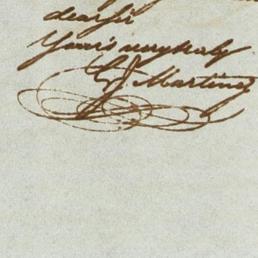 dear Sir
Yours very truly
E J Martinez